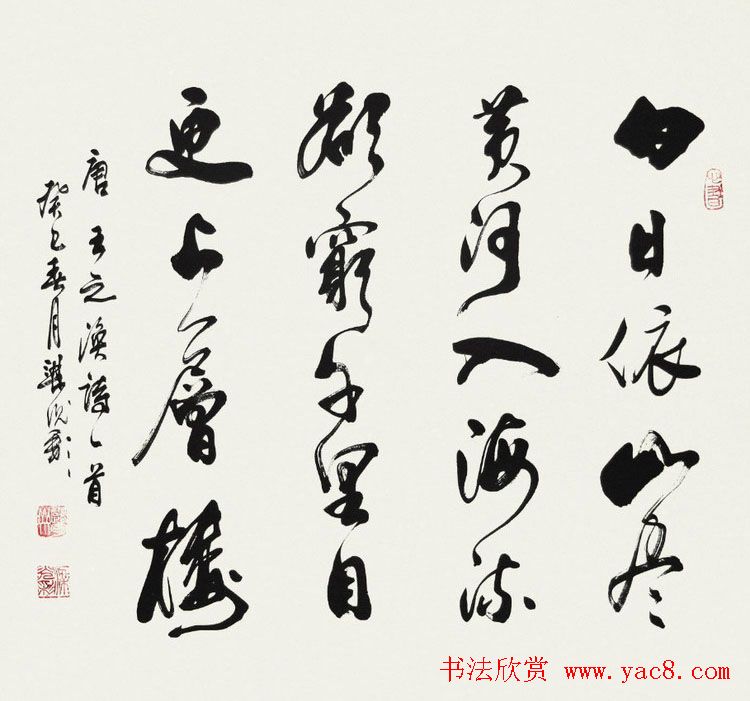 白日依山尽
黄河入海流
欲穷千里目
更上一層楼
唐王之涣诗一首
癸巳春月
书法欣赏 www.yac8.com